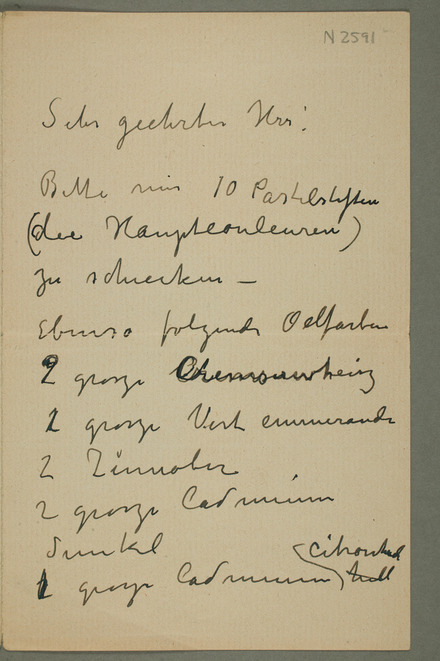 N 2591
Sehr geehrter Herr!
Bitte mir 10 Pastelstiften
(die Hauptcouleuren)
zu schicken –
Ebenso folgende Oelfarben
2 grosze Chremserweis
1 grosze Vert emmerande
2 Zinnober
2 grosze Cadmium
dunkel
1 grosze Cadmium hell